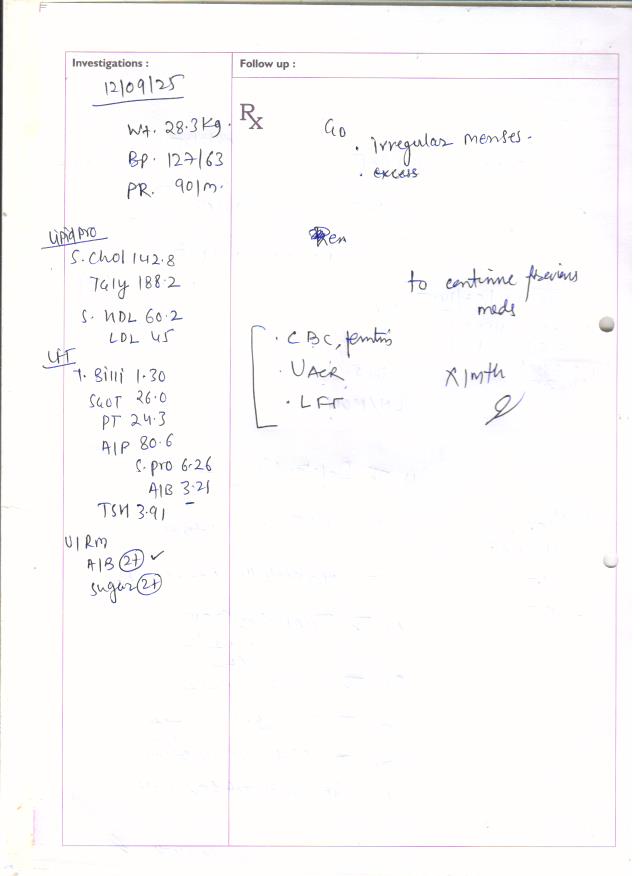 Investigations :
12/09/25
Wt. 28.3 Kg.
BP. 127/63
PR. 90/m.
Lipid Pro
S. Chol 142.8
Tgly 188.2
S. HDL 60.2
LDL 45
LFT
T. Billi 1.30
SGOT 26.0
PT 24.3
AlP 80.6
S. pro 6.26
AlB 3.21
TSH 3.91
U/Rm
AlB 2+ ✓
Sugar 2+
Follow up :
Rx
. irregular menses.
. excess
to continue previous
meds
. CBC, ferritin
. UACR
. LFT
x 1 mth